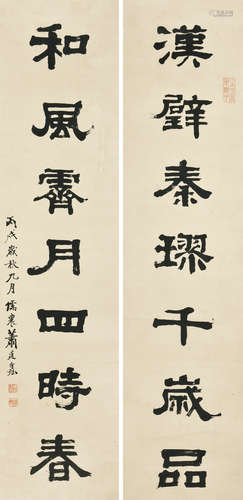 漢璧秦璆千歲品
和風霽月四時春
丙戌歲秋九月蕭